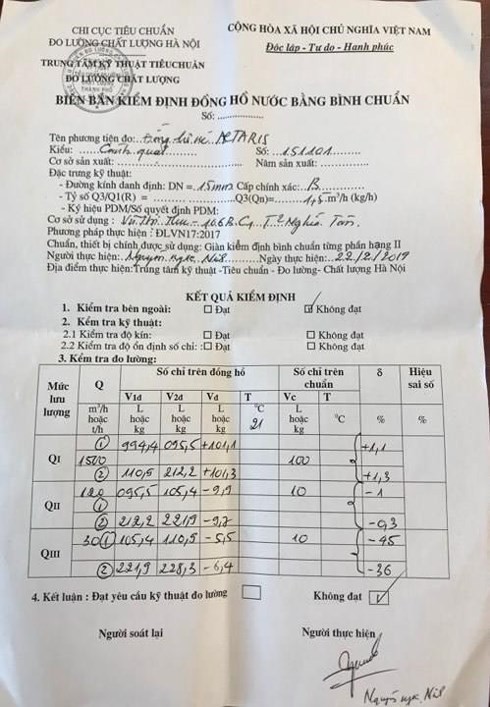 CHI CỤC TIÊU CHUẨN
ĐO LƯỜNG CHẤT LƯỢNG HÀ NỘI
TRUNG TÂM KỸ THUẬT TIÊU CHUẨN
ĐO LƯỜNG CHẤT LƯỢNG
CỘNG HÒA XÃ HỘI CHỦ NGHĨA VIỆT NAM
Độc lập - Tự do - Hạnh phúc
BIÊN BẢN KIỂM ĐỊNH ĐỒNG HỒ NƯỚC BẰNG BÌNH CHUẨN
Số: ...................
Tên phương tiện đo: Đồng hồ
Kiểu: Cánh quạt Số: 151101
Cơ sở sản xuất: Năm sản xuất:
Đặc trưng kỹ thuật:
- Đường kính danh định: DN = 15mm Cấp chính xác: B
- Tỷ số Q3/Q1(R) = Q3(Qn)= 1,5 m³/h (kg/h)
- Ký hiệu PDM/Số quyết định PDM:
Cơ sở sử dụng: Vũ Thị Thu - 106 Nghĩa Tân.
Phương pháp thực hiện: ĐLVN17:2017
Chuẩn, thiết bị chính được sử dụng: Giàn kiểm định bình chuẩn từng phần hạng II
Người thực hiện: Nguyễn Ngọc Ngày thực hiện: 22/2/2019
Địa điểm thực hiện: Trung tâm kỹ thuật -Tiêu chuẩn - Đo lường- Chất lượng Hà Nội
KẾT QUẢ KIỂM ĐỊNH
1. Kiểm tra bên ngoài: □ Đạt ☑ Không đạt
2. Kểm tra kỹ thuật:
2.1 Kiểm tra độ kín: □ Đạt □ Không đạt
2.2 Kiểm tra độ ổn định số chỉ: □ Đạt □ Không đạt
3. Kểm tra đo lường:
Mức lưu lượng Q Số chỉ trên đồng hồ Số chỉ trên chuẩn δ Hiệu sai số
V1đ V2đ Vđ T Vc T
m³/h hoặc t/h L hoặc kg L hoặc kg L hoặc kg °C 21 L hoặc kg °C % %
QI 1500 100
① 994,4 095,5 +101,1 +1,1
② 110,5 212,2 +101,3 +1,3
QII 120 10
① 095,5 105,4 -9,9 -1
② 212,2 221,9 -9,7 -0,3
QIII 30 10
① 105,4 110,5 -5,5 -45
② 221,9 228,3 -6,4 -36
4. Kết luận : Đạt yêu cầu kỹ thuật đo lường □ Không đạt ☑
Người soát lại Người thực hiện
Nguyễn Ngọc